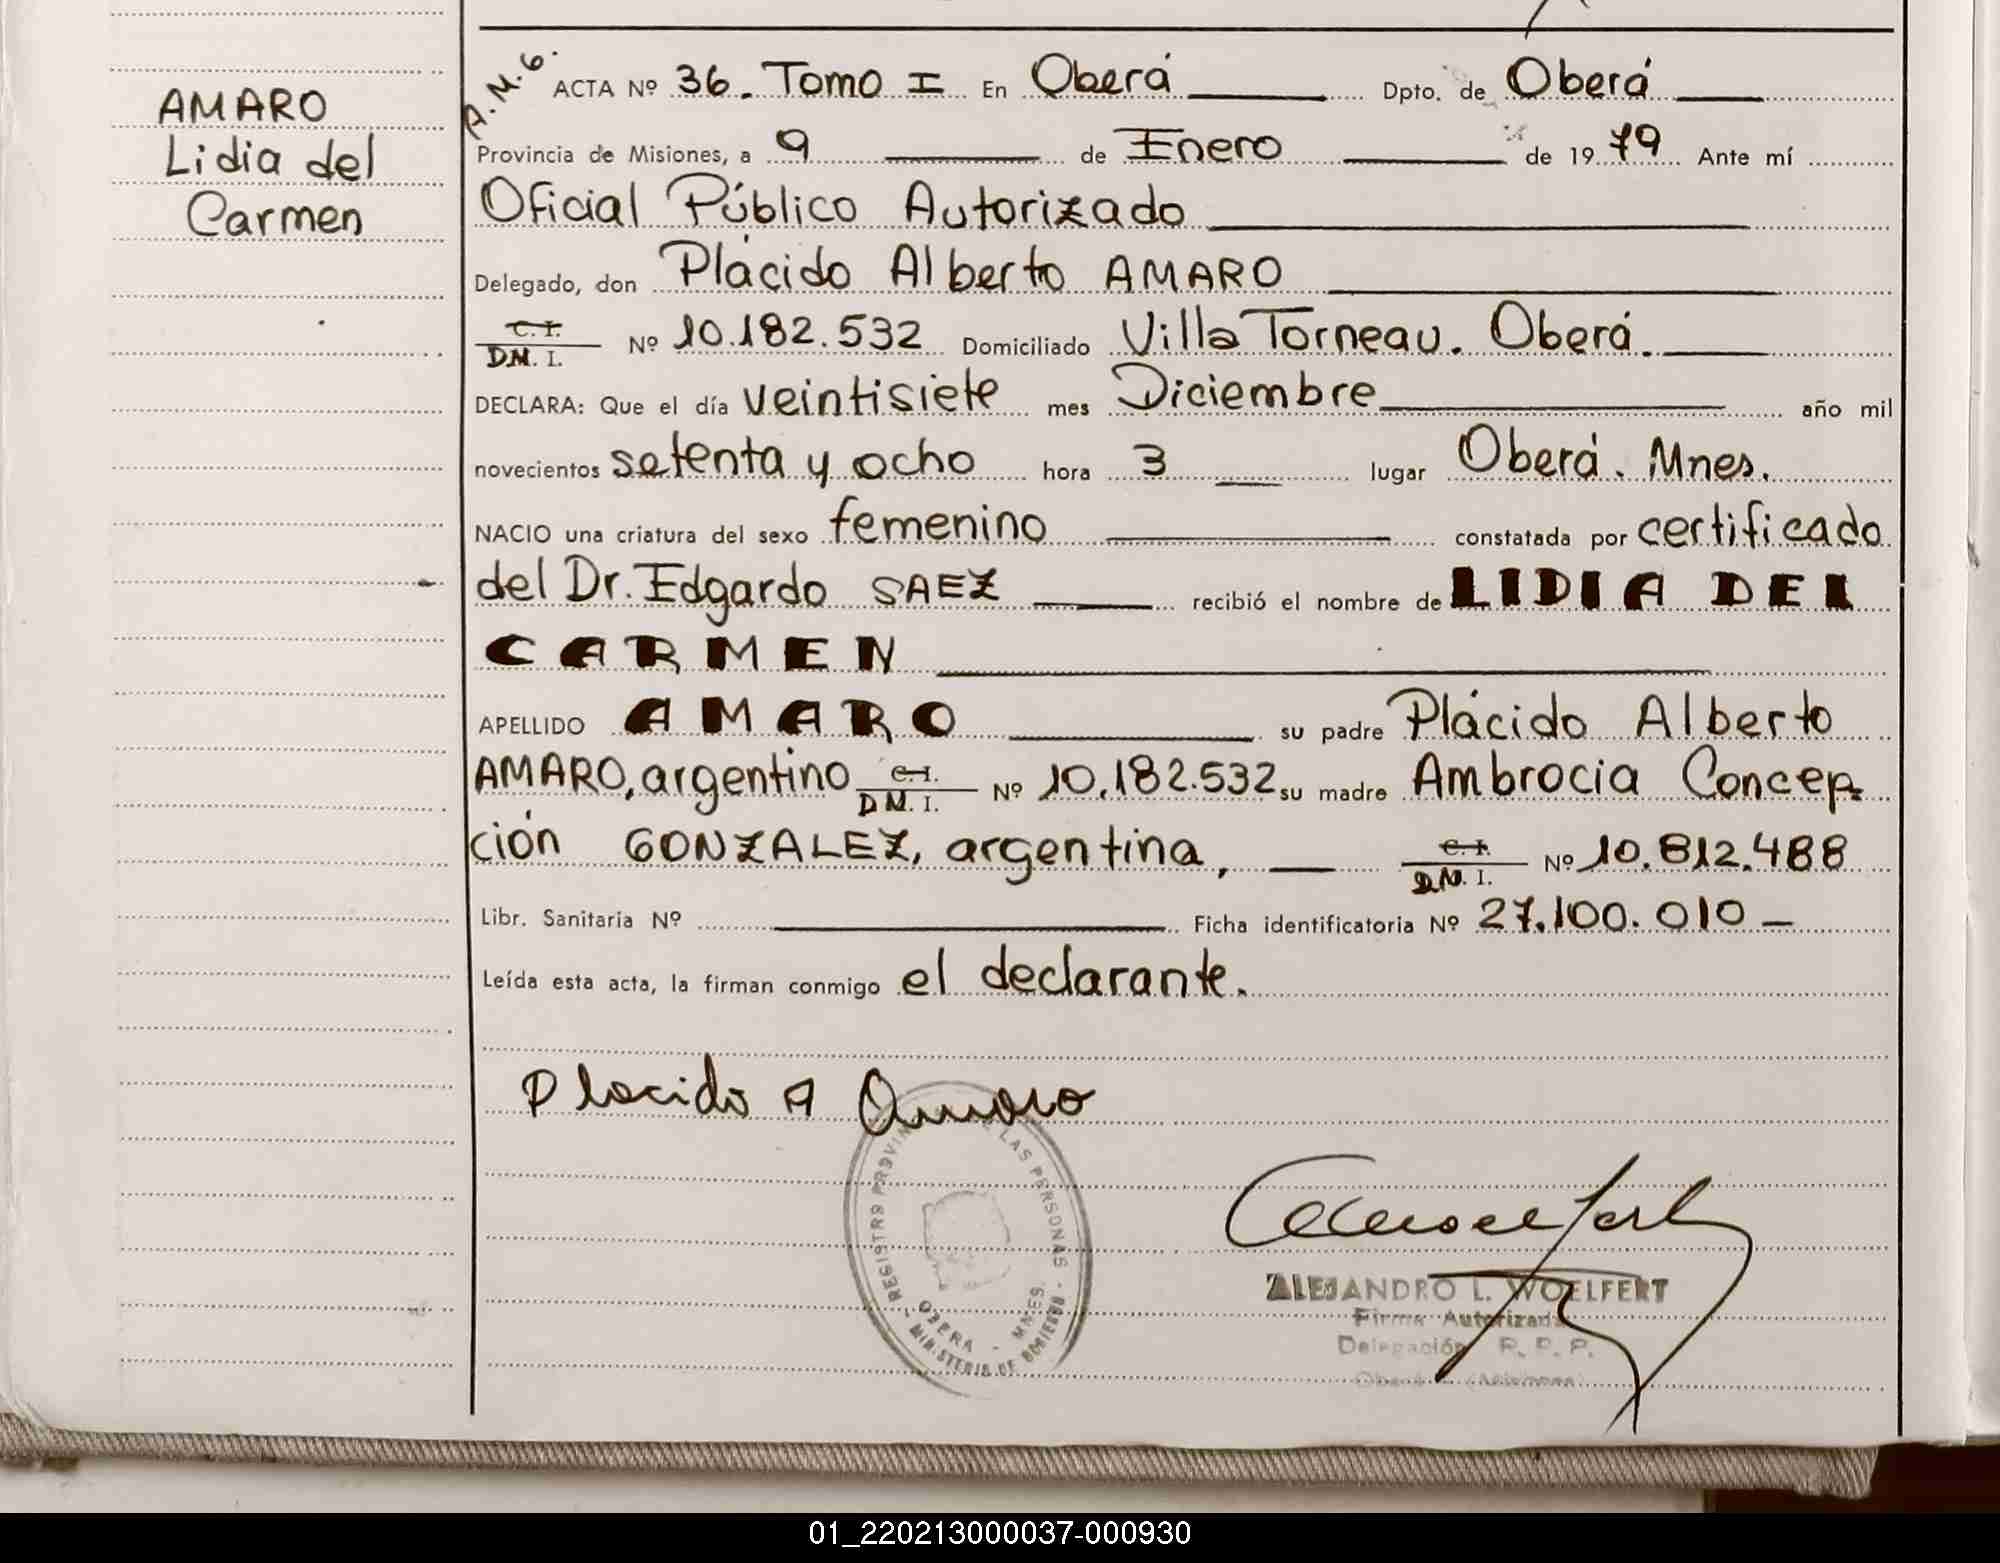 AMARO
Lidia del
Carmen
A.M.G.
ACTA Nº 36. Tomo I En Oberá Dpto. de Oberá
Provincia de Misiones, a 9 de Enero de 1979 Ante mí
Oficial Público Autorizado
Delegado, don Plácido Alberto AMARO
C.I.
D.N.I. Nº 10.182.532 Domiciliado Villa Torneau. Oberá.
DECLARA: Que el día veintisiete mes Diciembre año mil
novecientos setenta y ocho hora 3 lugar Oberá. Mnes.
NACIO una criatura del sexo femenino constatada por certificado
del Dr. Edgardo SAEZ recibió el nombre de LIDIA DEL
CARMEN
APELLIDO AMARO su padre Plácido Alberto
AMARO, argentino C.I. D.N.I. Nº 10.182.532 su madre Ambrocia Concep-
ción GONZALEZ, argentina, C.I. D.N.I. Nº 10.812.488
Libr. Sanitaria Nº Ficha identificatoria Nº 27.100.010 —
Leída esta acta, la firman conmigo el declarante.
Placido A Amaro
REGISTRO PROVIN LAS PERSONAS
OBERA - MNES.
MINISTERIO DE GOBIERNO
ALEJANDRO L. WOELFERT
Firma Autorizada
Delegación R. P. P.
Oberá (Misiones)
01_220213000037-000930